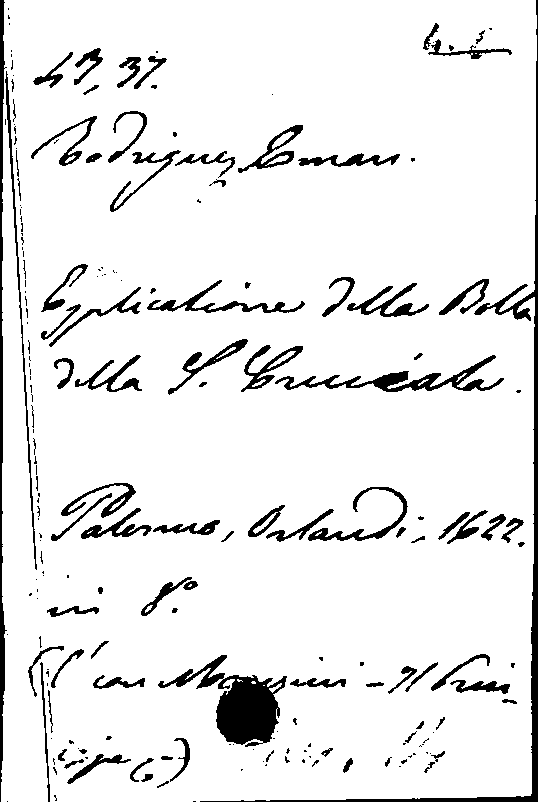 43, 37.
Rodriguez Eman.
Esplicatione della Bolla
della S. Cruciata.
Palermo, Orlandi, 1622.
in 8°.
con Mancini - Il Prin-
cipe